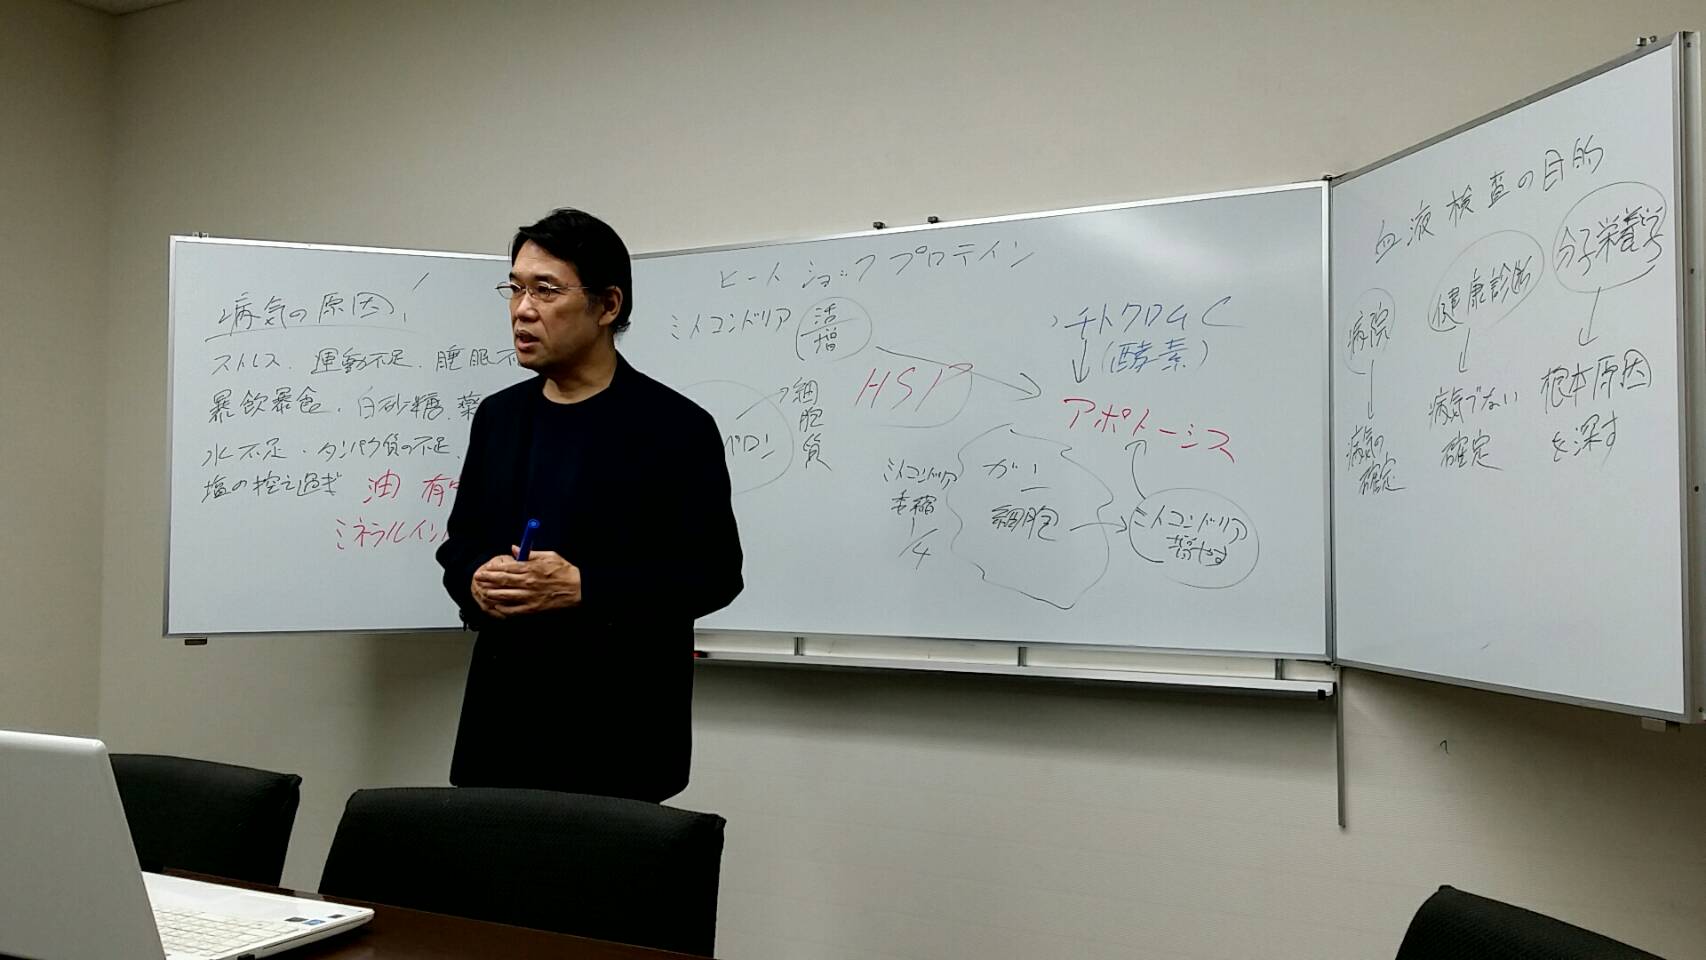 病気の原因
ストレス、運動不足、睡眠不
暴飲暴食、白砂糖、薬
水不足・タンパク質の不足、
塩の控え過ぎ 油 有
ミネラルイン
ヒートショックプロテイン
ミトコンドリア 活
増
細胞質
HSP
チトクロムC
(酵素)
アポトーシス
ミトコンドリア
委縮
1/4
ガン
細胞
ミトコンドリア
増やす
血液検査の目的
病院
病気の
確定
健康診断
病気でない
確定
分子栄養学
根本原因
を探す